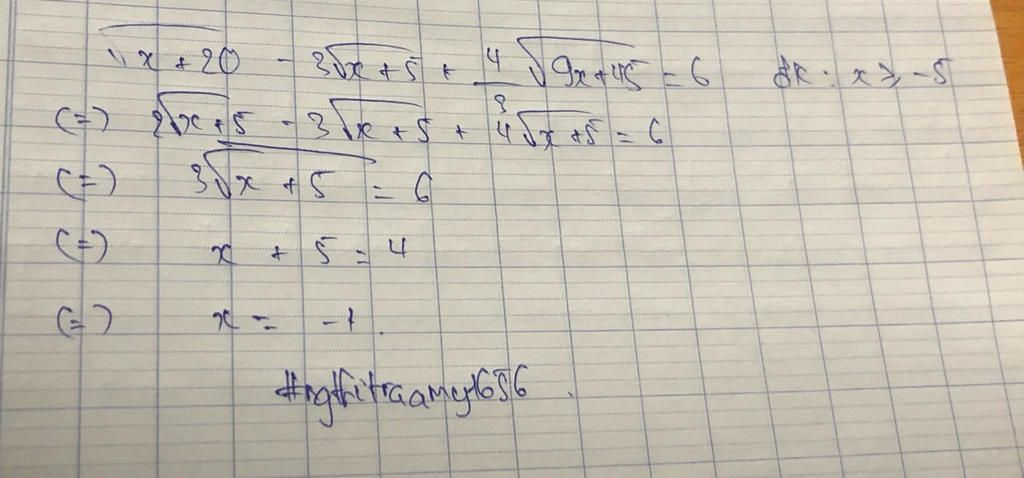 √x + 20 - 3√x + 5 + 4/3 √9x + 45 = 6 ĐK : x ≥ -5
(=) 2√x + 5 - 3√x + 5 + 4√x + 5 = 6
(=) 3√x + 5 = 6
(=) x + 5 = 4
(=) x = -1.
#ngthitraamy1656.